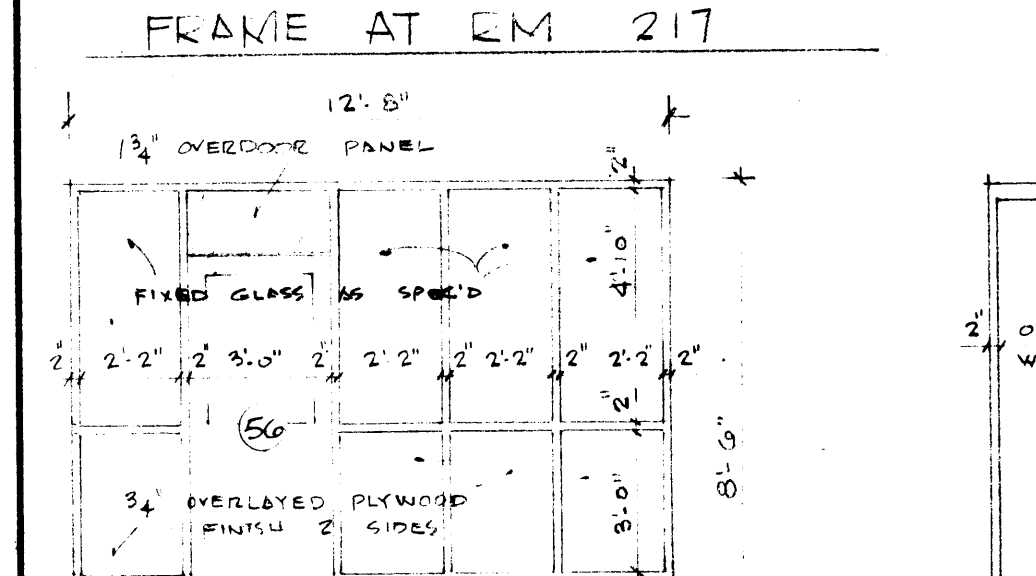 FRAME AT RM 217
12'-8"
1 3/4" OVERDOOR PANEL
2"
4'-10"
FIXED GLASS AS SPEC'D
2" 2'-2" 2" 3'-0" 2" 2'-2" 2" 2'-2" 2" 2'-2" 2"
2"
2"
56
8'-6"
3/4" OVERLAYED PLYWOOD
FINISH 2 SIDES
3'-0"